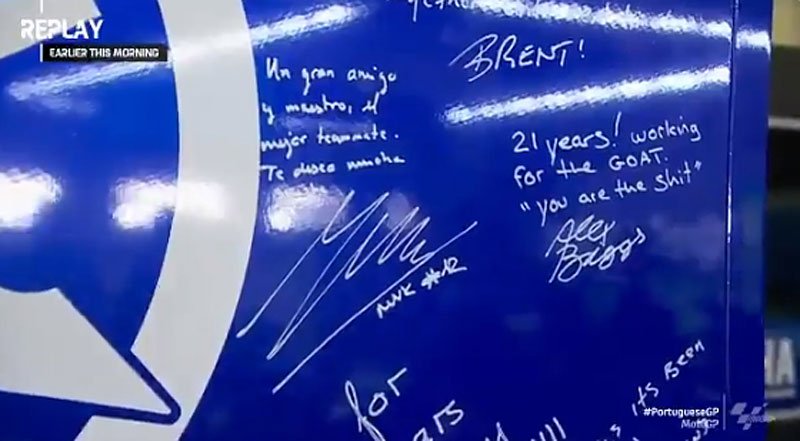 REPLAY
EARLIER THIS MORNING
BRENT!
Un gran amigo
y maestro, el
mejor teammate.
Te deseo mucha
MVK #12
21 years! working
for the GOAT.
"you are the shit"
Alex
Briggs
for
its Been
#PortugueseGP
MotoGP